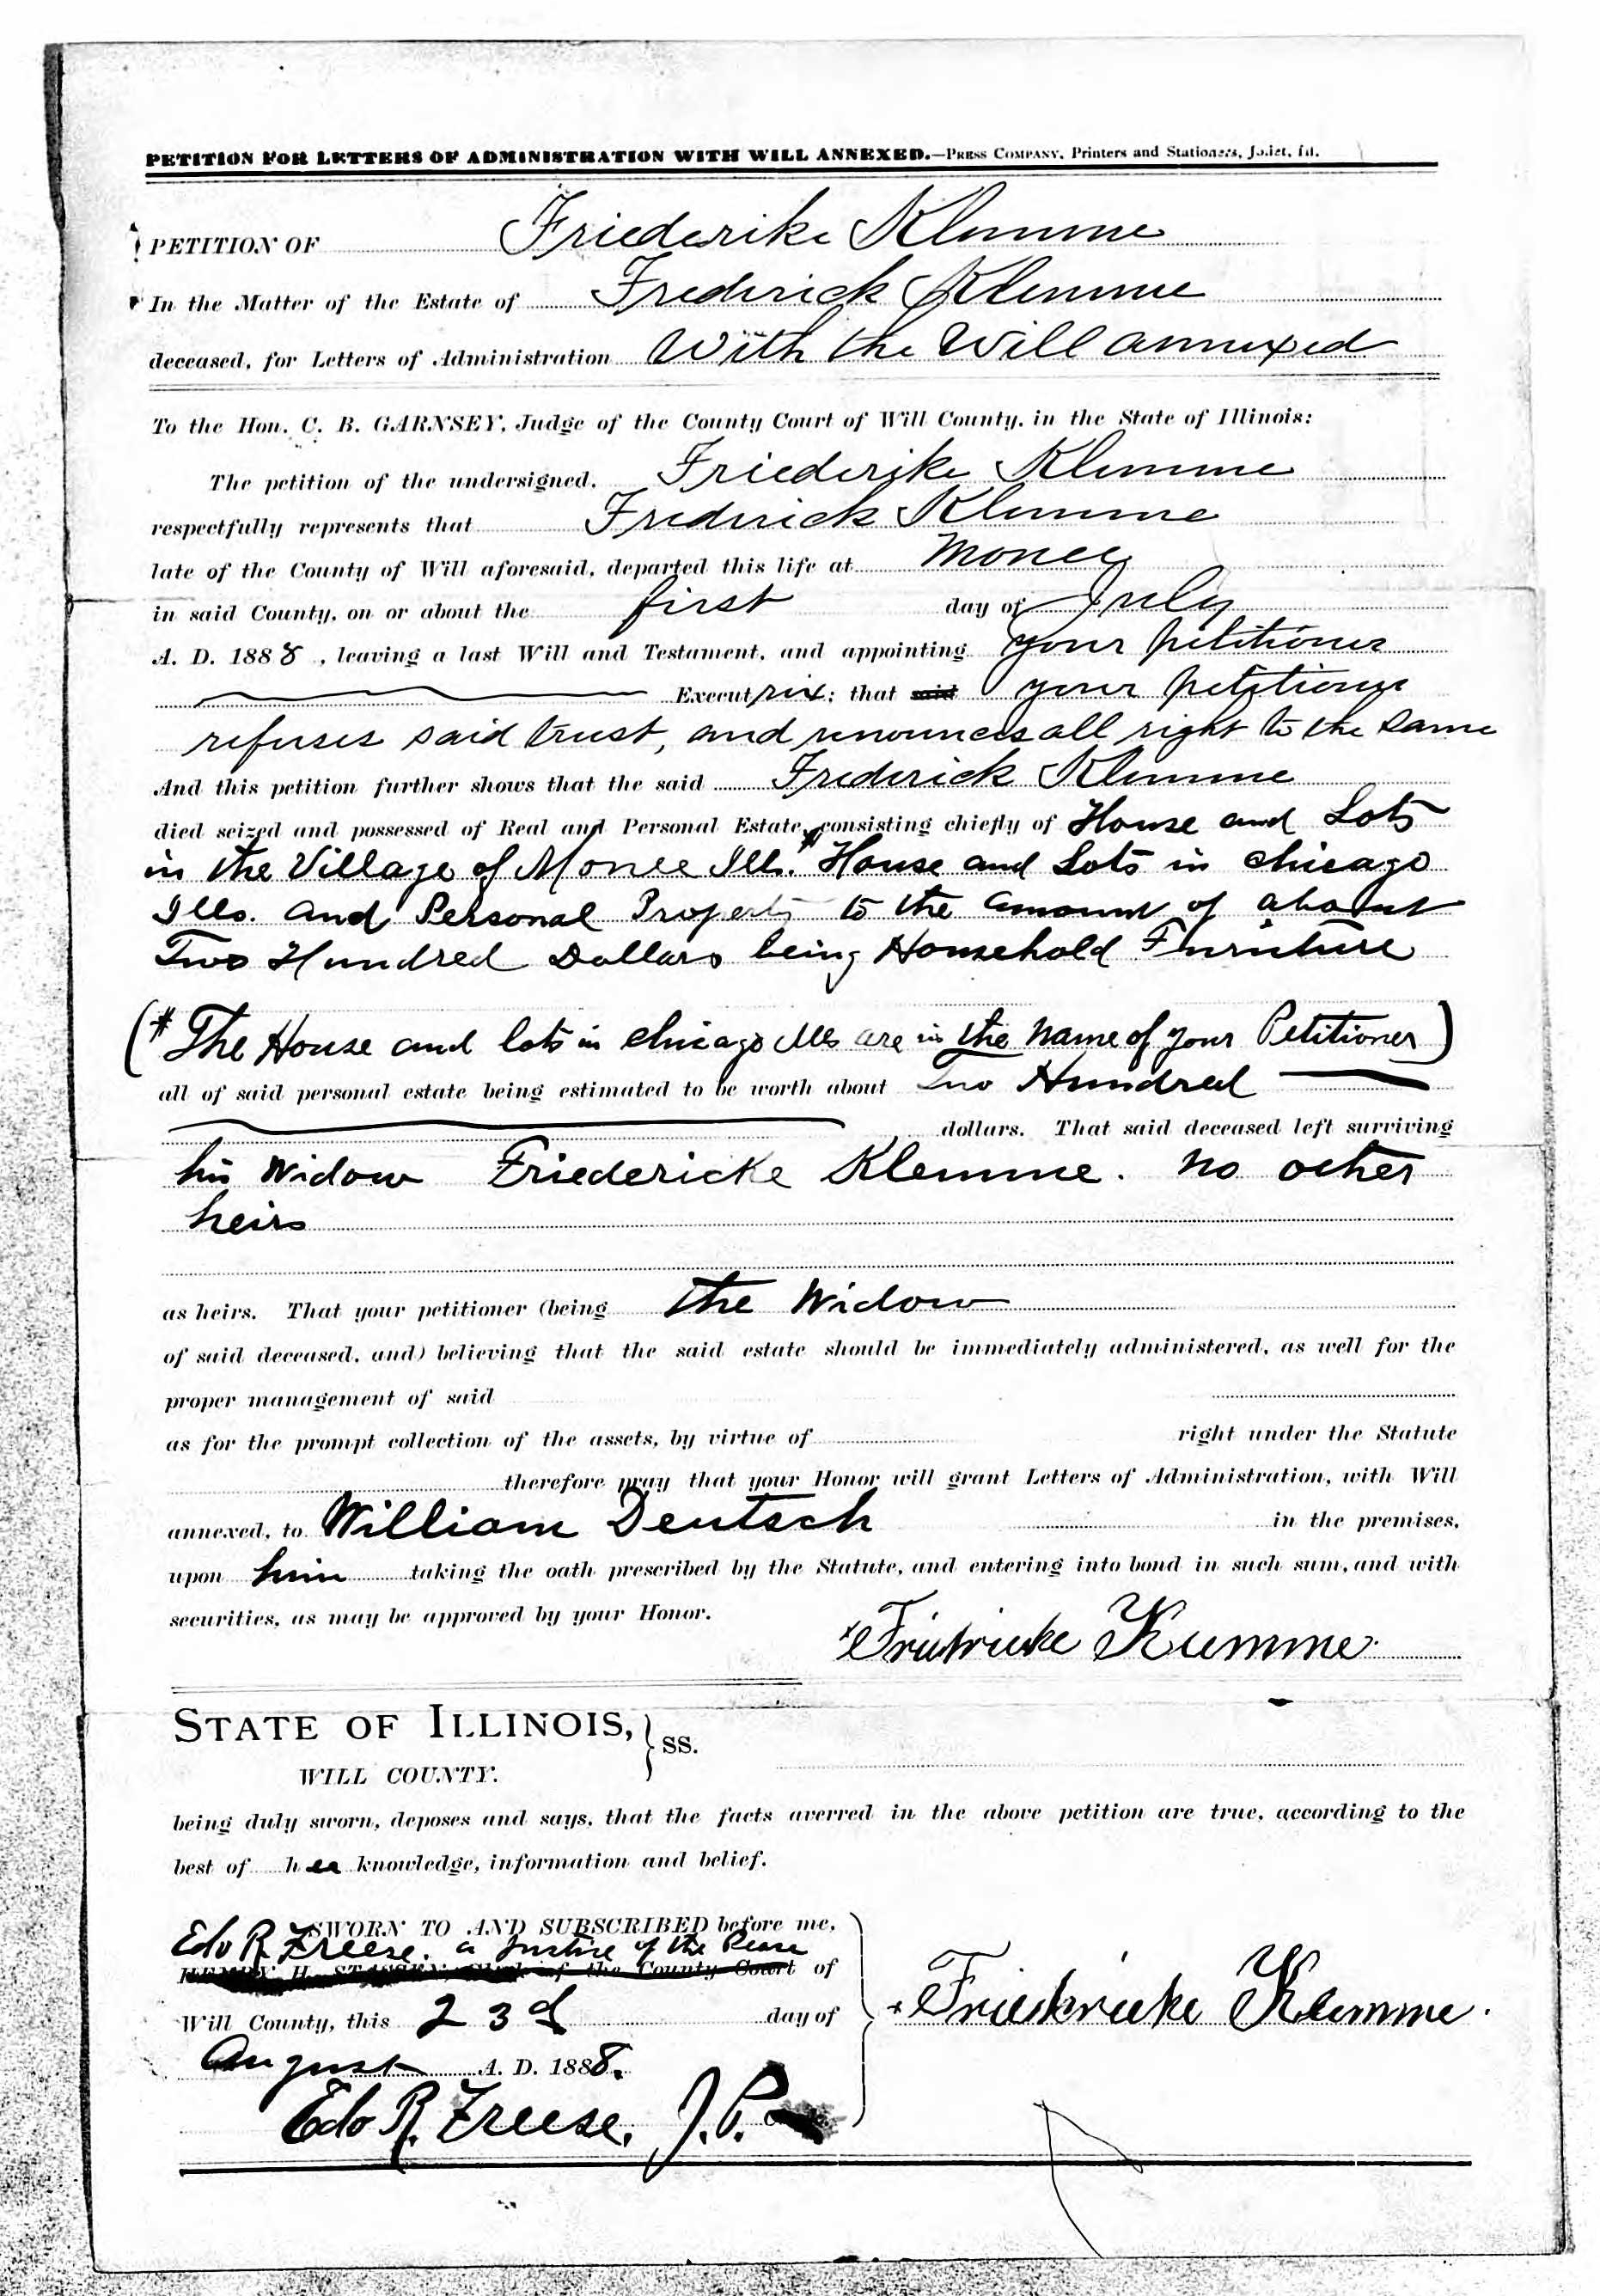 PETITION FOR LETTERS OF ADMINISTRATION WITH WILL ANNEXED.—PRESS COMPANY, Printers and Stationers, Joliet, Ill.
PETITION OF Friederike Klemme
In the Matter of the Estate of Frederick Klemme
deceased, for Letters of Administration With the Will annexed
To the Hon. C. B. GARNSEY, Judge of the County Court of Will County, in the State of Illinois:
The petition of the undersigned, Friederike Klemme
respectfully represents that Frederick Klemme
late of the County of Will aforesaid, departed this life at Monee
in said County, on or about the first day of July
A. D. 1888, leaving a last Will and Testament, and appointing your petitioner
Executrix; that said your petitioner
refuses said trust, and renounces all right to the same
And this petition further shows that the said Frederick Klemme
died seized and possessed of Real and Personal Estate, consisting chiefly of House and Lots
in the Village of Monee Ills. * House and Lots in Chicago
Ills. and Personal Property to the amount of about
Two Hundred Dollars being Household Furniture
(* The House and lots in Chicago Ills are in the Name of your Petitioner)
all of said personal estate being estimated to be worth about Two Hundred
dollars. That said deceased left surviving
his Widow Friedericke Klemme. No other
heirs
as heirs. That your petitioner (being the Widow
of said deceased, and) believing that the said estate should be immediately administered, as well for the
proper management of said
as for the prompt collection of the assets, by virtue of right under the Statute
therefore pray that your Honor will grant Letters of Administration, with Will
annexed, to William Deutsch in the premises,
upon him taking the oath prescribed by the Statute, and entering into bond in such sum, and with
securities, as may be approved by your Honor.
x Friedricke Klemme.
STATE OF ILLINOIS, } SS.
WILL COUNTY.
being duly sworn, deposes and says, that the facts averred in the above petition are true, according to the
best of her knowledge, information and belief.
SWORN TO AND SUBSCRIBED before me,
Edo R. Freese. a Justice of the Peace
of the County Court of
Will County, this 23d day of
August A. D. 1888.
x Friedericke Klemme.
Edo R. Freese. J. P.